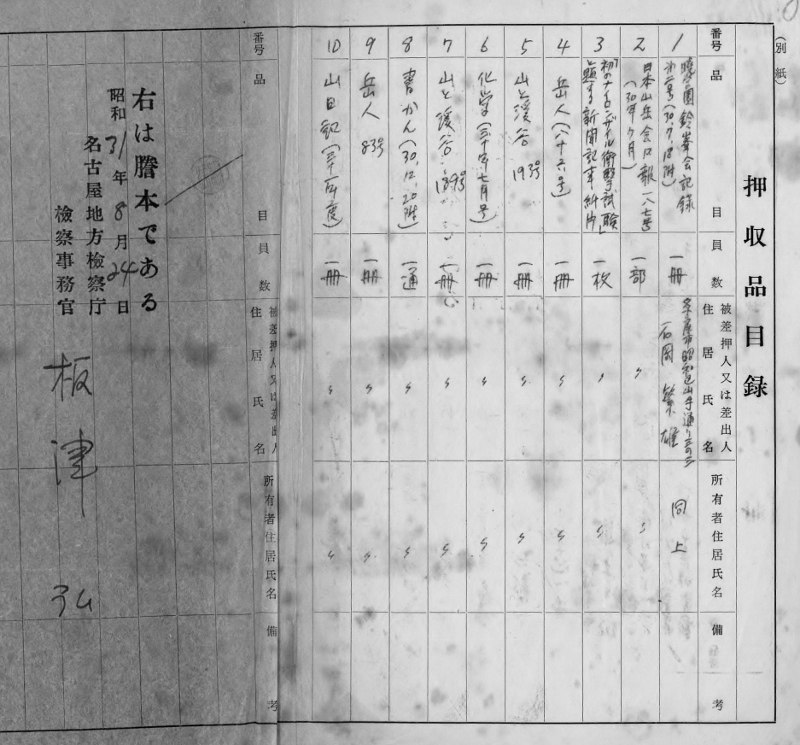 (別紙)
押収品目録
番号 品目 員数 被差押人又は差出人住居氏名 所有者住居氏名 備考
1 鈴峯会記録 一冊 名古屋市昭和区山手通り 石岡繁雄 同上
2 日本山岳会々報一八七号 (30年7月) 一部 〃 〃
3 初のナイロンザイル衝撃試験と題する新聞記事紙片 一枚 〃 〃
4 岳人(八十六号) 一冊 〃 〃
5 山と溪谷 193号 一冊 〃 〃
6 化学(三十年七月号) 一冊 〃 〃
7 山と溪谷 189号 一冊 〃 〃
8 書かん(30.12.20附) 一通 〃 〃
9 岳人 83号 一冊 〃 〃
10 山日記(三十一年度) 一冊 〃 〃
番号 品目 員数 被差押人又は差出人住居氏名 所有者住居氏名 備考
右は謄本である
昭和31年8月24日
名古屋地方検察庁
検察事務官
板津弘